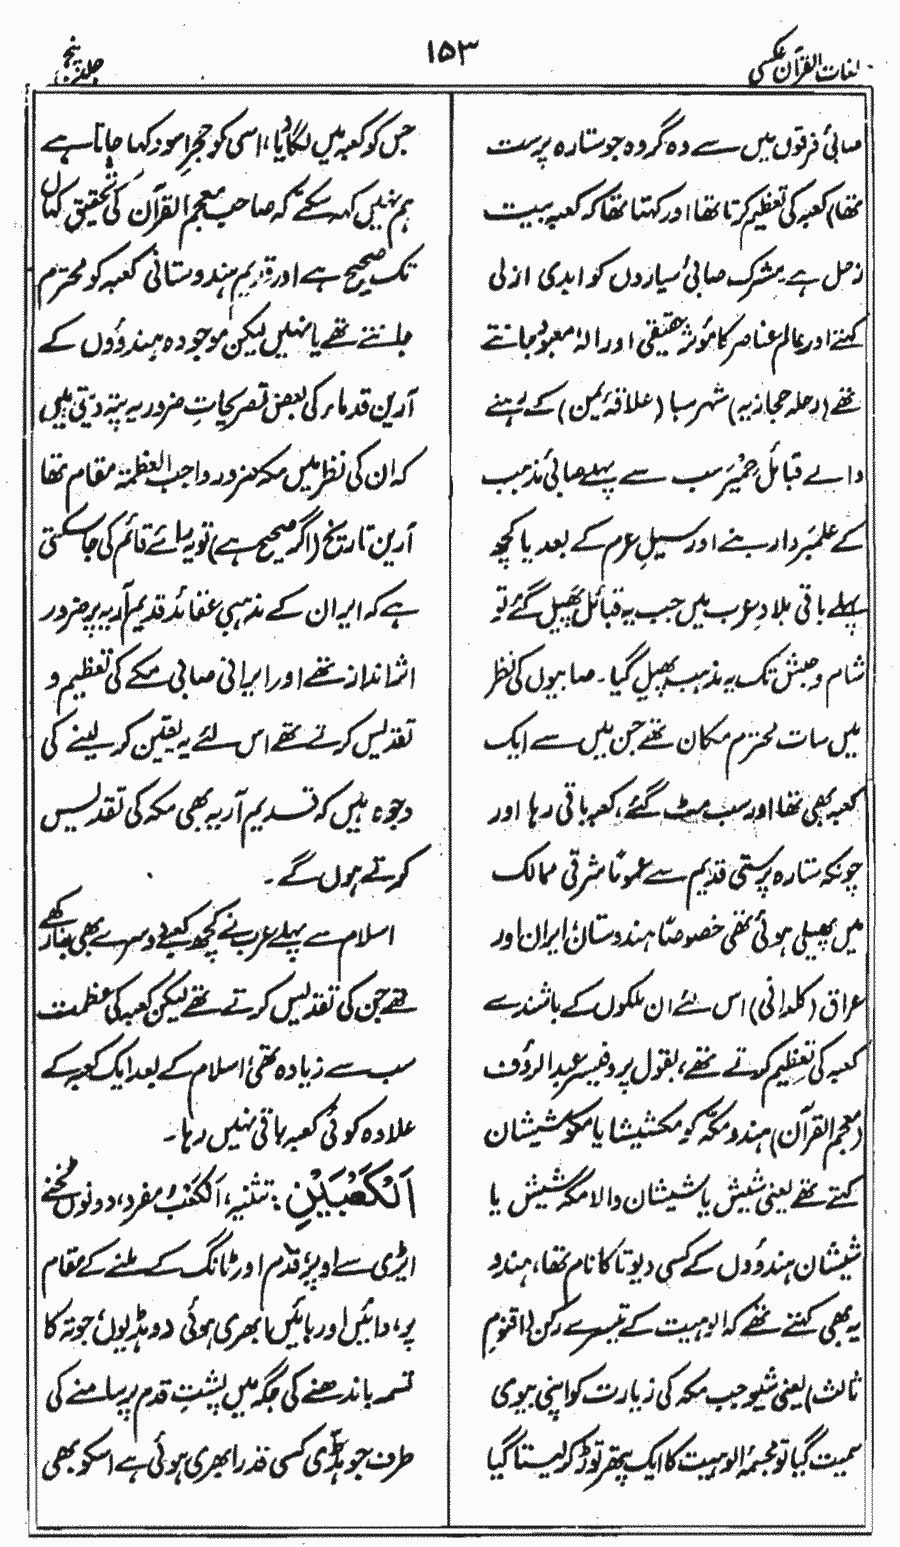 لغات القرآن عکسی
۱۵۳
جلد پنجم
صابئی فرقوں میں سے وہ گروہ جو ستارہ پرست
تھا) کعبہ کی تعظیم کرتا تھا اور کہتا تھا کہ کعبہ بیت
زحل ہے۔ مشرک صابئی سیاروں کو ابدی ازلی
کہتے اور عالم عناصر کا مؤثر حقیقی اور الٰہ معبود جانتے
تھے (رحلہ حجازیہ) شہر سبا (علاقۂ یمن) کے رہنے
والے قبائل حِمْیَر سب سے پہلے صابئی مذہب
کے علمبردار بنے اور سیلِ عرم کے بعد یا کچھ
پہلے باقی بلادِ عرب میں جب یہ قبائل پھیل گئے تو
شام و حبش تک یہ مذہب پھیل گیا۔ صابیوں کی نظر
میں سات محترم مکان تھے جن میں سے ایک
کعبہ بھی تھا اور سب مٹ گئے، کعبہ باقی رہا اور
چونکہ ستارہ پرستی قدیم سے عموماً مشرقی ممالک
میں پھیلی ہوئی تھی خصوصاً ہندوستان، ایران اور
عراق (کلدانی) اس لئے ان ملکوں کے باشندے
کعبہ کی تعظیم کرتے تھے، بقول پروفیسر عبدالرؤف
(معجم القرآن) ہندو مکہ کو مکشیشا یا مکو شیشان
کہتے تھے یعنی شیش یا شیشان والا مکہ شیش یا
شیشان ہندوؤں کے کسی دیوتا کا نام تھا، ہندو
یہ بھی کہتے تھے کہ الوہیت کے تیسرے رکن (اقنوم
ثالث) یعنی شیو جب مکہ کی زیارت کو اپنی بیوی
سمیت گیا تو مجسمۂ الوہیت کا ایک پتھر توڑ کر لیتا گیا
جس کو کعبہ میں لگا دیا، اسی کو حجرِ اسود کہا جاتا ہے
ہم نہیں کہہ سکتے کہ صاحب معجم القرآن کی تحقیق کہاں
تک صحیح ہے اور قدیم ہندوستانی کعبہ کو محترم
جانتے تھے یا نہیں لیکن موجودہ ہندوؤں کے
آرین قدماء کی بعض تصریحات ضرور یہ پتہ دیتی ہیں
کہ ان کی نظر میں مکہ ضرور واجب العظمۃ مقام تھا
آرین تاریخ (اگر صحیح ہے) تو یہ رائے قائم کی جا سکتی
ہے کہ ایران کے مذہبی عقائد قدیم آریہ پر ضرور
اثرانداز تھے اور ایرانی صابی مکے کی تعظیم و
تقدیس کرتے تھے اس لئے یہ یقین کر لینے کی
وجوہ ہیں کہ قدیم آریہ بھی مکہ کی تقدیس
کرتے ہوں گے۔
اسلام سے پہلے عرب نے کچھ کعبے دوسرے بھی بنا رکھے
تھے جن کی تقدیس کرتے تھے لیکن کعبہ کی عظمت
سب سے زیادہ تھی، اسلام کے بعد ایک کعبہ کے
علاوہ کوئی کعبہ باقی نہیں رہا۔
اَلْکَعْبَیْنِ: تثنیہ، اَلْکَعْبُ مفرد، دونوں ٹخنے
ایڑی سے اوپر، قدم اور ٹانگ کے ملنے کے مقام
پر، دائیں اور بائیں ابھری ہوئی دو ہڈیوں، جوتہ کا
تسمہ باندھنے کی جگہ میں پشتِ قدم پر سامنے کی
طرف جو ہڈی کسی قدر ابھری ہوئی ہے اسکو بھی